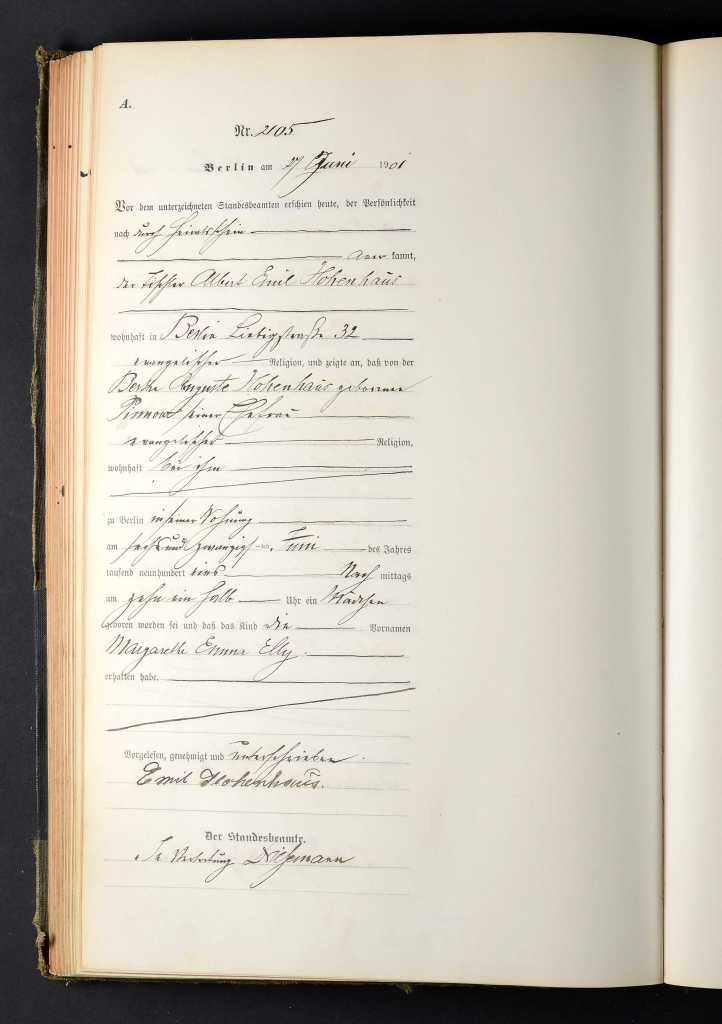 A.
Nr. 2105
Berlin am 27 Juni 1901
Vor dem unterzeichneten Standesbeamten erschien heute, der Persönlichkeit
nach durch Heiratsschein
aner kannt,
der Tischler Albert Emil Hohenhaus
wohnhaft in Berlin Liebigstraße 32
evangelischer Religion, und zeigte an, daß von der
Auguste Hohenhaus geborene
Pinnow seiner Ehefrau
evangelischer Religion,
wohnhaft bei ihm
zu Berlin in seiner Wohnung
am sechsundzwanzigsten Juni des Jahres
tausend neunhundert eins Nach mittags
um zehn ein halb Uhr ein Mädchen
geboren worden sei und daß das Kind die Vornamen
Margarethe Emma Elly
erhalten habe.
Vorgelesen, genehmigt und unterschrieben
Emil Hohenhaus.
Der Standesbeamte.
In Vertretung